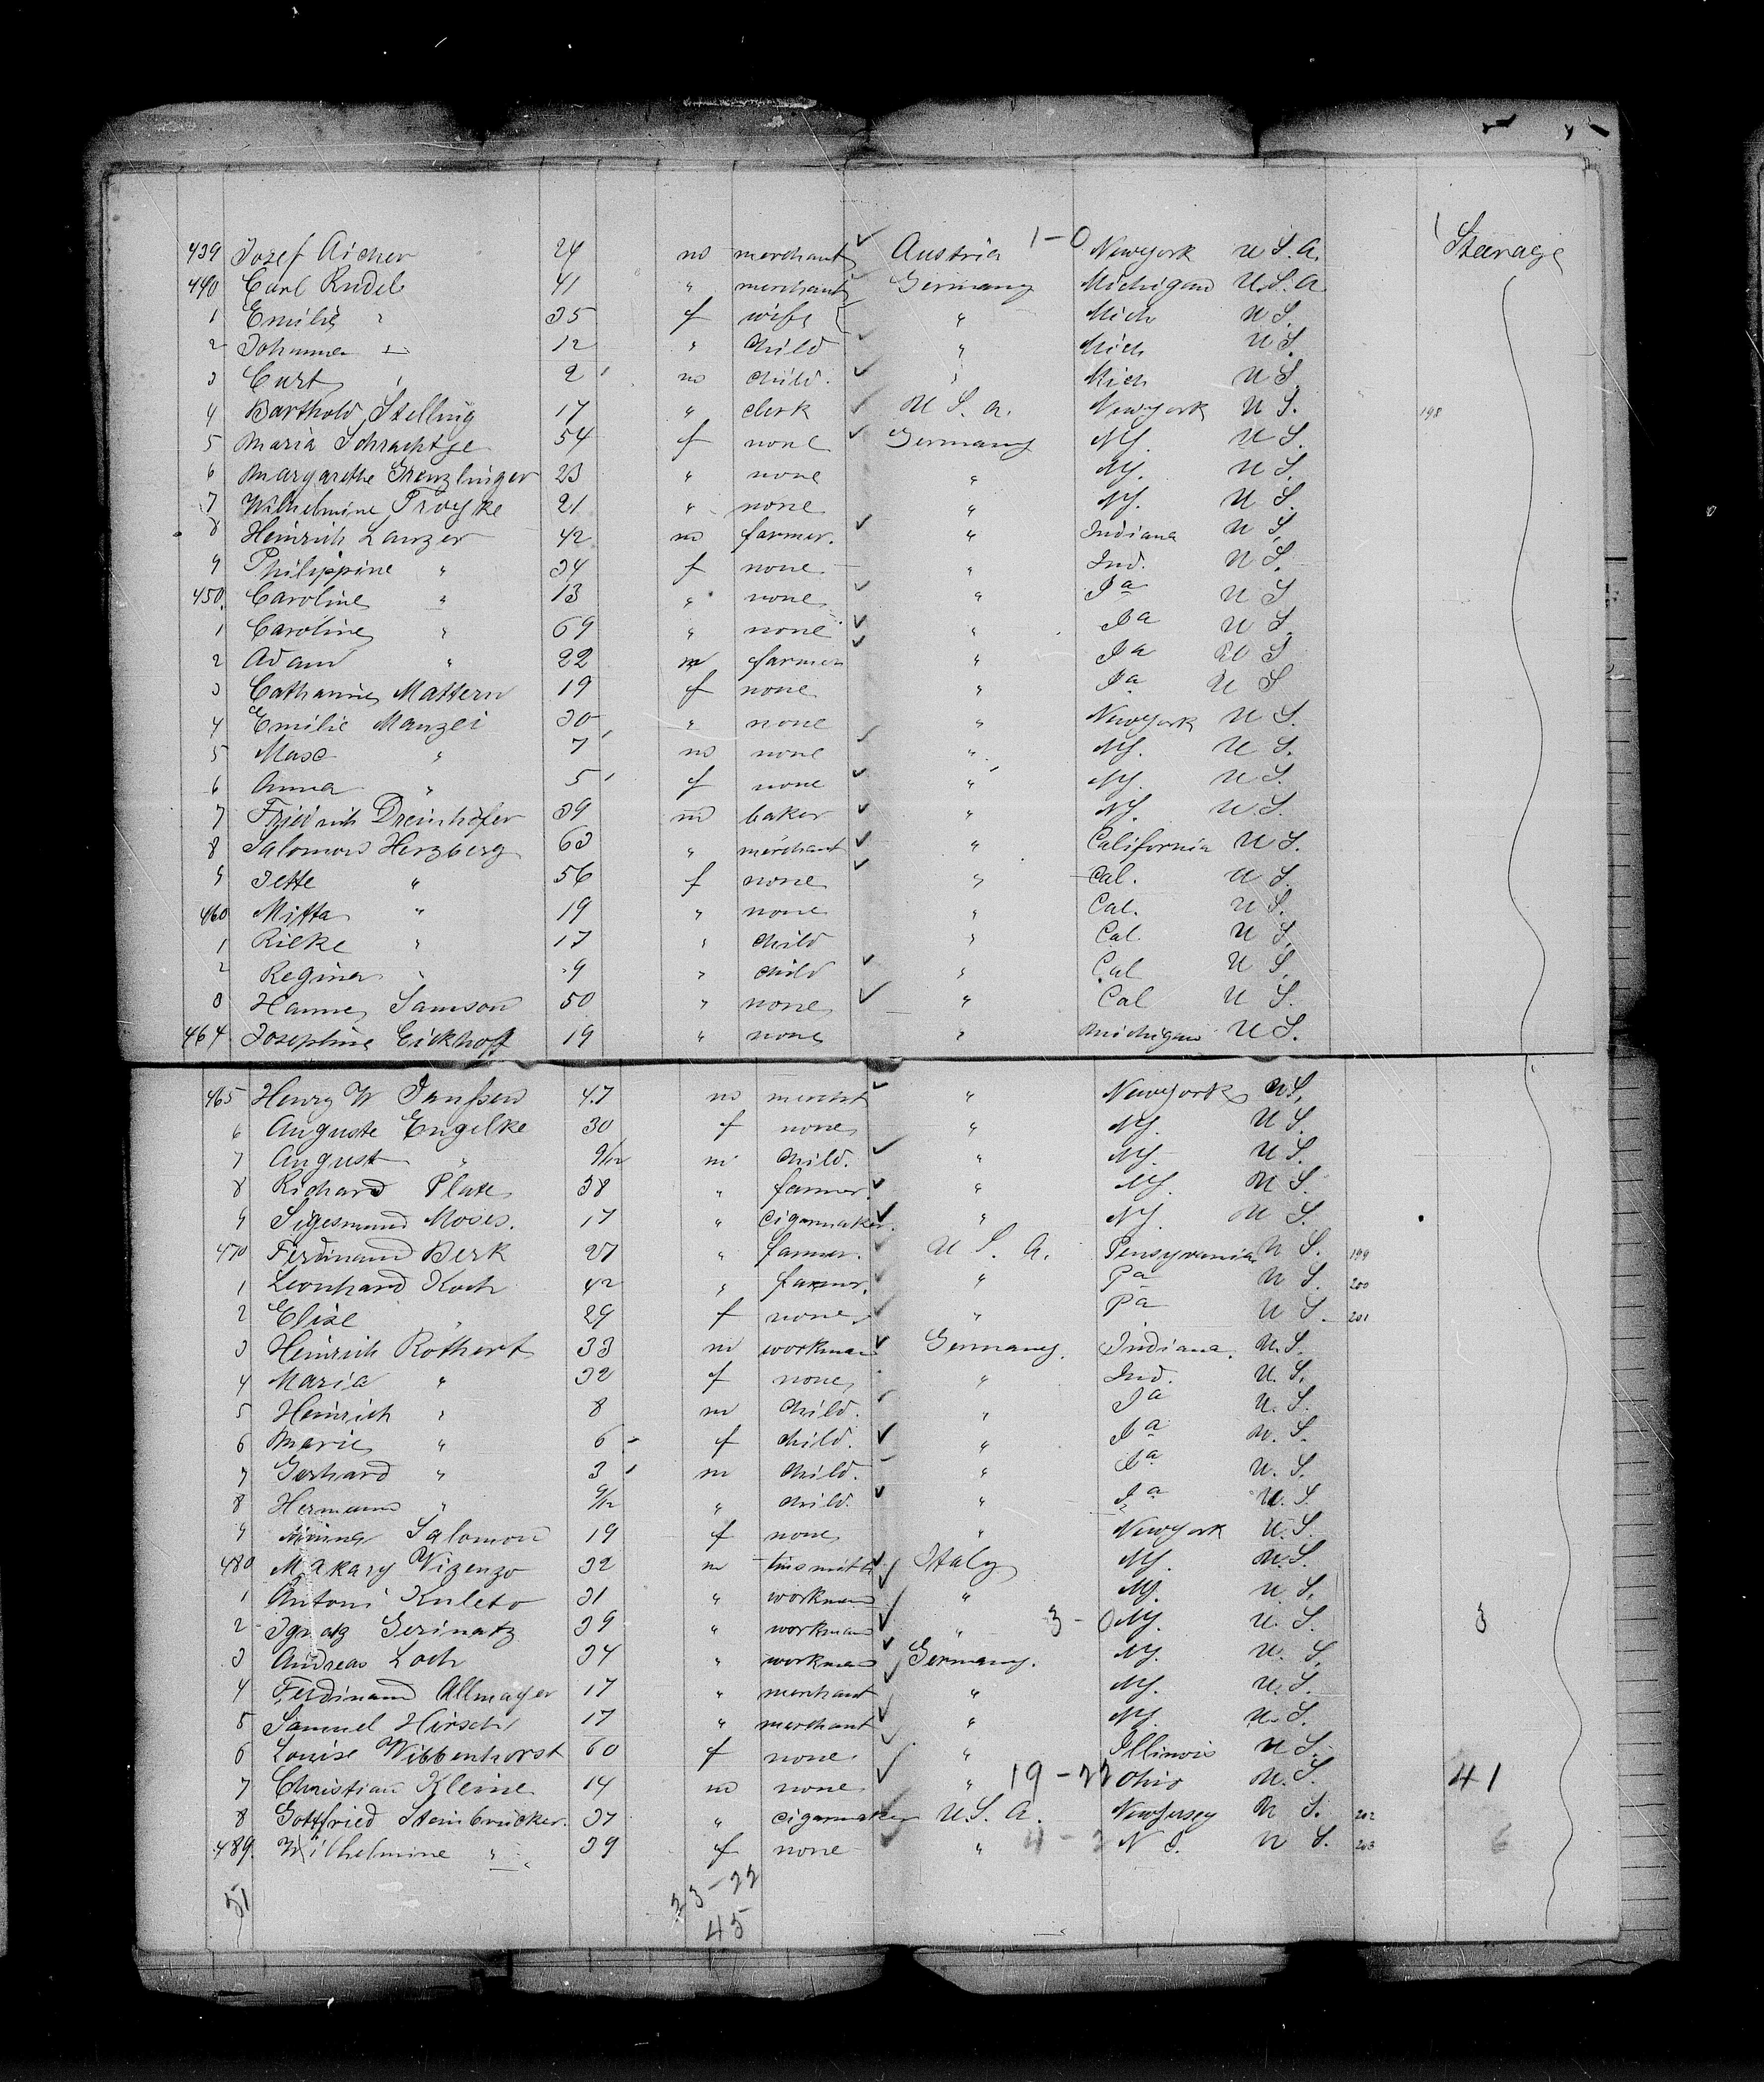 Steerage
439 Josef Aicher 24 m merchant Austria 1-0 Newyork U S. A.
440 Carl Rudel 41 " merchant Germany Michigan U. S. A.
1 Emilie " 35 f wife " Mich U S.
2 Johanna " 12 " Child " Mich U S.
3 Curt " 2 m child. " Mich U S
4 Barthold Stelling 17 " clerk U S. A. Newyork U S. 198
5 Maria Schrachtge 54 f none Germany NY. U S.
6 Margarethe Grenzlinger 23 " none " NY. U S.
7 Wilhelmine 21 " none " NY. U S.
8 Heinrich Lanzer 42 m farmer. " Indiana U S.
9 Philippine " 34 f none " Ind. U S.
450. Caroline " 13 " none " Ia U S
1 Caroline " 69 " none " Ia U S.
2 Adam " 22 m farmer " Ia U S
3 Catharine Mattern 19 f none " Ia U S
4 Emilie Manzei 30 " none " Newyork U S.
5 Max " 7 m none " NY. U S.
6 Anna " 5 f none " NY. U S.
7 Friedrich Dreinhöfer 39 m baker " NY. U. S.
8 Salomon Herzberg 63 " merchant " California U S.
9 Jette " 56 f none " Cal. U S
460 " 19 " none " Cal. U S.
1 Rieke " 17 " child " Cal. U S.
2 Regina " 9 " child " Cal U S.
3 Hanne Samson 50 " none " Cal U S.
464. Josephine Eickhoff 19 " none " Michigan U S.
465 Henry W Janssen 47 m mercht " Newyork U S.
6 Auguste Engelke 30 f none " NY. U S.
7 August " 9/12 m Child. " NY. U S.
8 Richard Plate 38 " farmer. " NY. U S.
9 Sigesmund Moses. 17 " cigarmaker. " NY. U S.
470 Ferdinand Berk 27 " farmer. U S. A. Pensyvania U S. 199
1 Leonhard Koch 42 " farmer. " Pa U S. 200
2 Elise " 29 f none " Pa U S. 201
3 Heinrich Rothert 33 m workman Germany. Indiana. U. S.
4 Maria " 32 f none " Ind. U. S.
5 Heinrich " 8 m Child. " Ia U. S.
6 Marie " 6 f child. " Ia U. S.
7 Gerhard " 3 m Child. " Ia U. S.
8 Hermann " 9/12 " child. " Ia U. S.
9 Salomon 19 f none " Newyork U. S.
480 Makary Vizenzo 32 m tinsmith Italy NY. U. S.
1 Antoni Kuleto 31 " workman " NY. U. S.
2 Ignatz Gerinatz 39 " workman " 3-0 NY. U. S. 3
3 Andreas Loch 34 " workman Germany. NY. U. S.
4 Ferdinand Allmayer 17 " merchant " NY. U. S.
5 Samuel Hirsch 17 " merchant " NY. U. S.
6 Louise Wibbenhorst 60 f none " Illinois U S.
7 Christian Kleine 14 m none " 19-22 Ohio U. S. 41
8 Gottfried Steinbrücker. 37 " cigarmaker U. S. A. Newjersey U S. 202
489. Wilhelmine " 39 f none " 4-2 N J. U S. 203 6
51 23-22
45